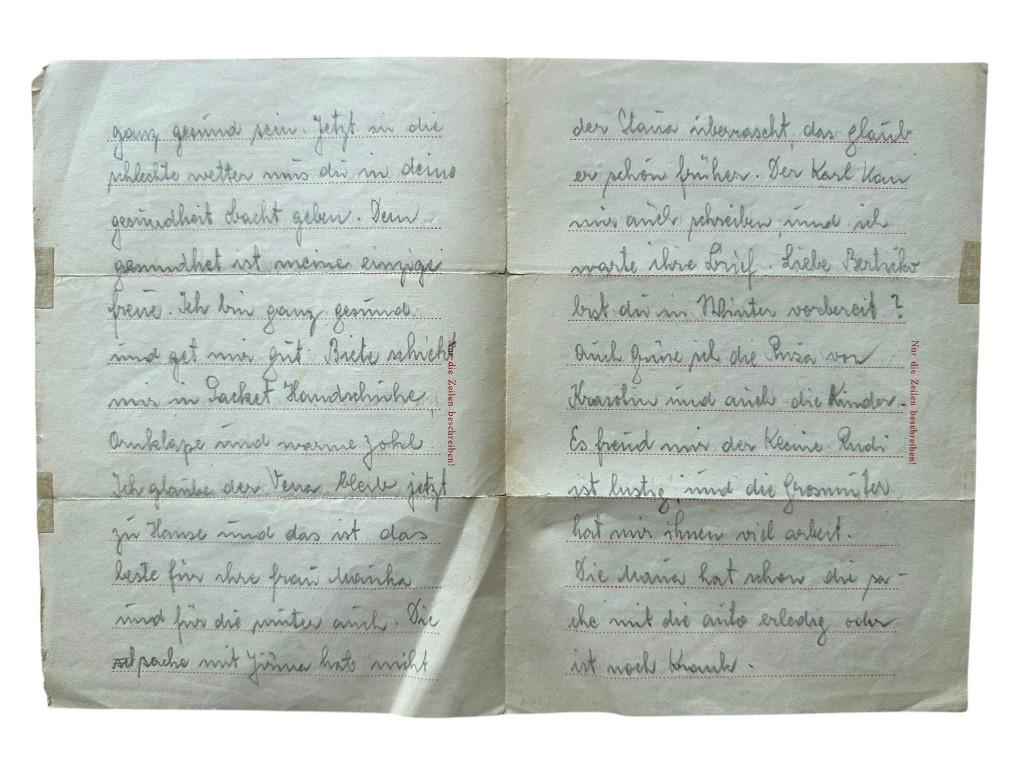 ganz gesund sein. Jetzt in die
schlechte wetter mus du in deine
gesundheit obacht geben. Den
gesundhet ist meine einzige
freue. Ich bin ganz gesund
und get mir gut. Biete schickt
mir in Packet Handschuhe,
Ornklape und warme
Ich glaube der Vena bleib jetzt
zu Hause und das ist das
beste für ihre frau Manka
und für die muter auch. Die
sache mit hat miht
der Stasa überrascht, das glaub
er schon früher. Der Karl Kan
mir auch schreiben, und ich
warte ihre brief. Liebe
bist du in Winter vorbereit?
Auch grüse ich die Rusa von
Krasolin und auch die Kinder.
Es freud mir der Kleine Rudi
ist lustig, und die Grosmuter
hat mir ihnen viel arbeit.
Die hat schon die sa-
che mit die auto erledig oder
ist noch Krank.
Nur die Zeilen beschreiben!
Nur die Zeilen beschreiben!